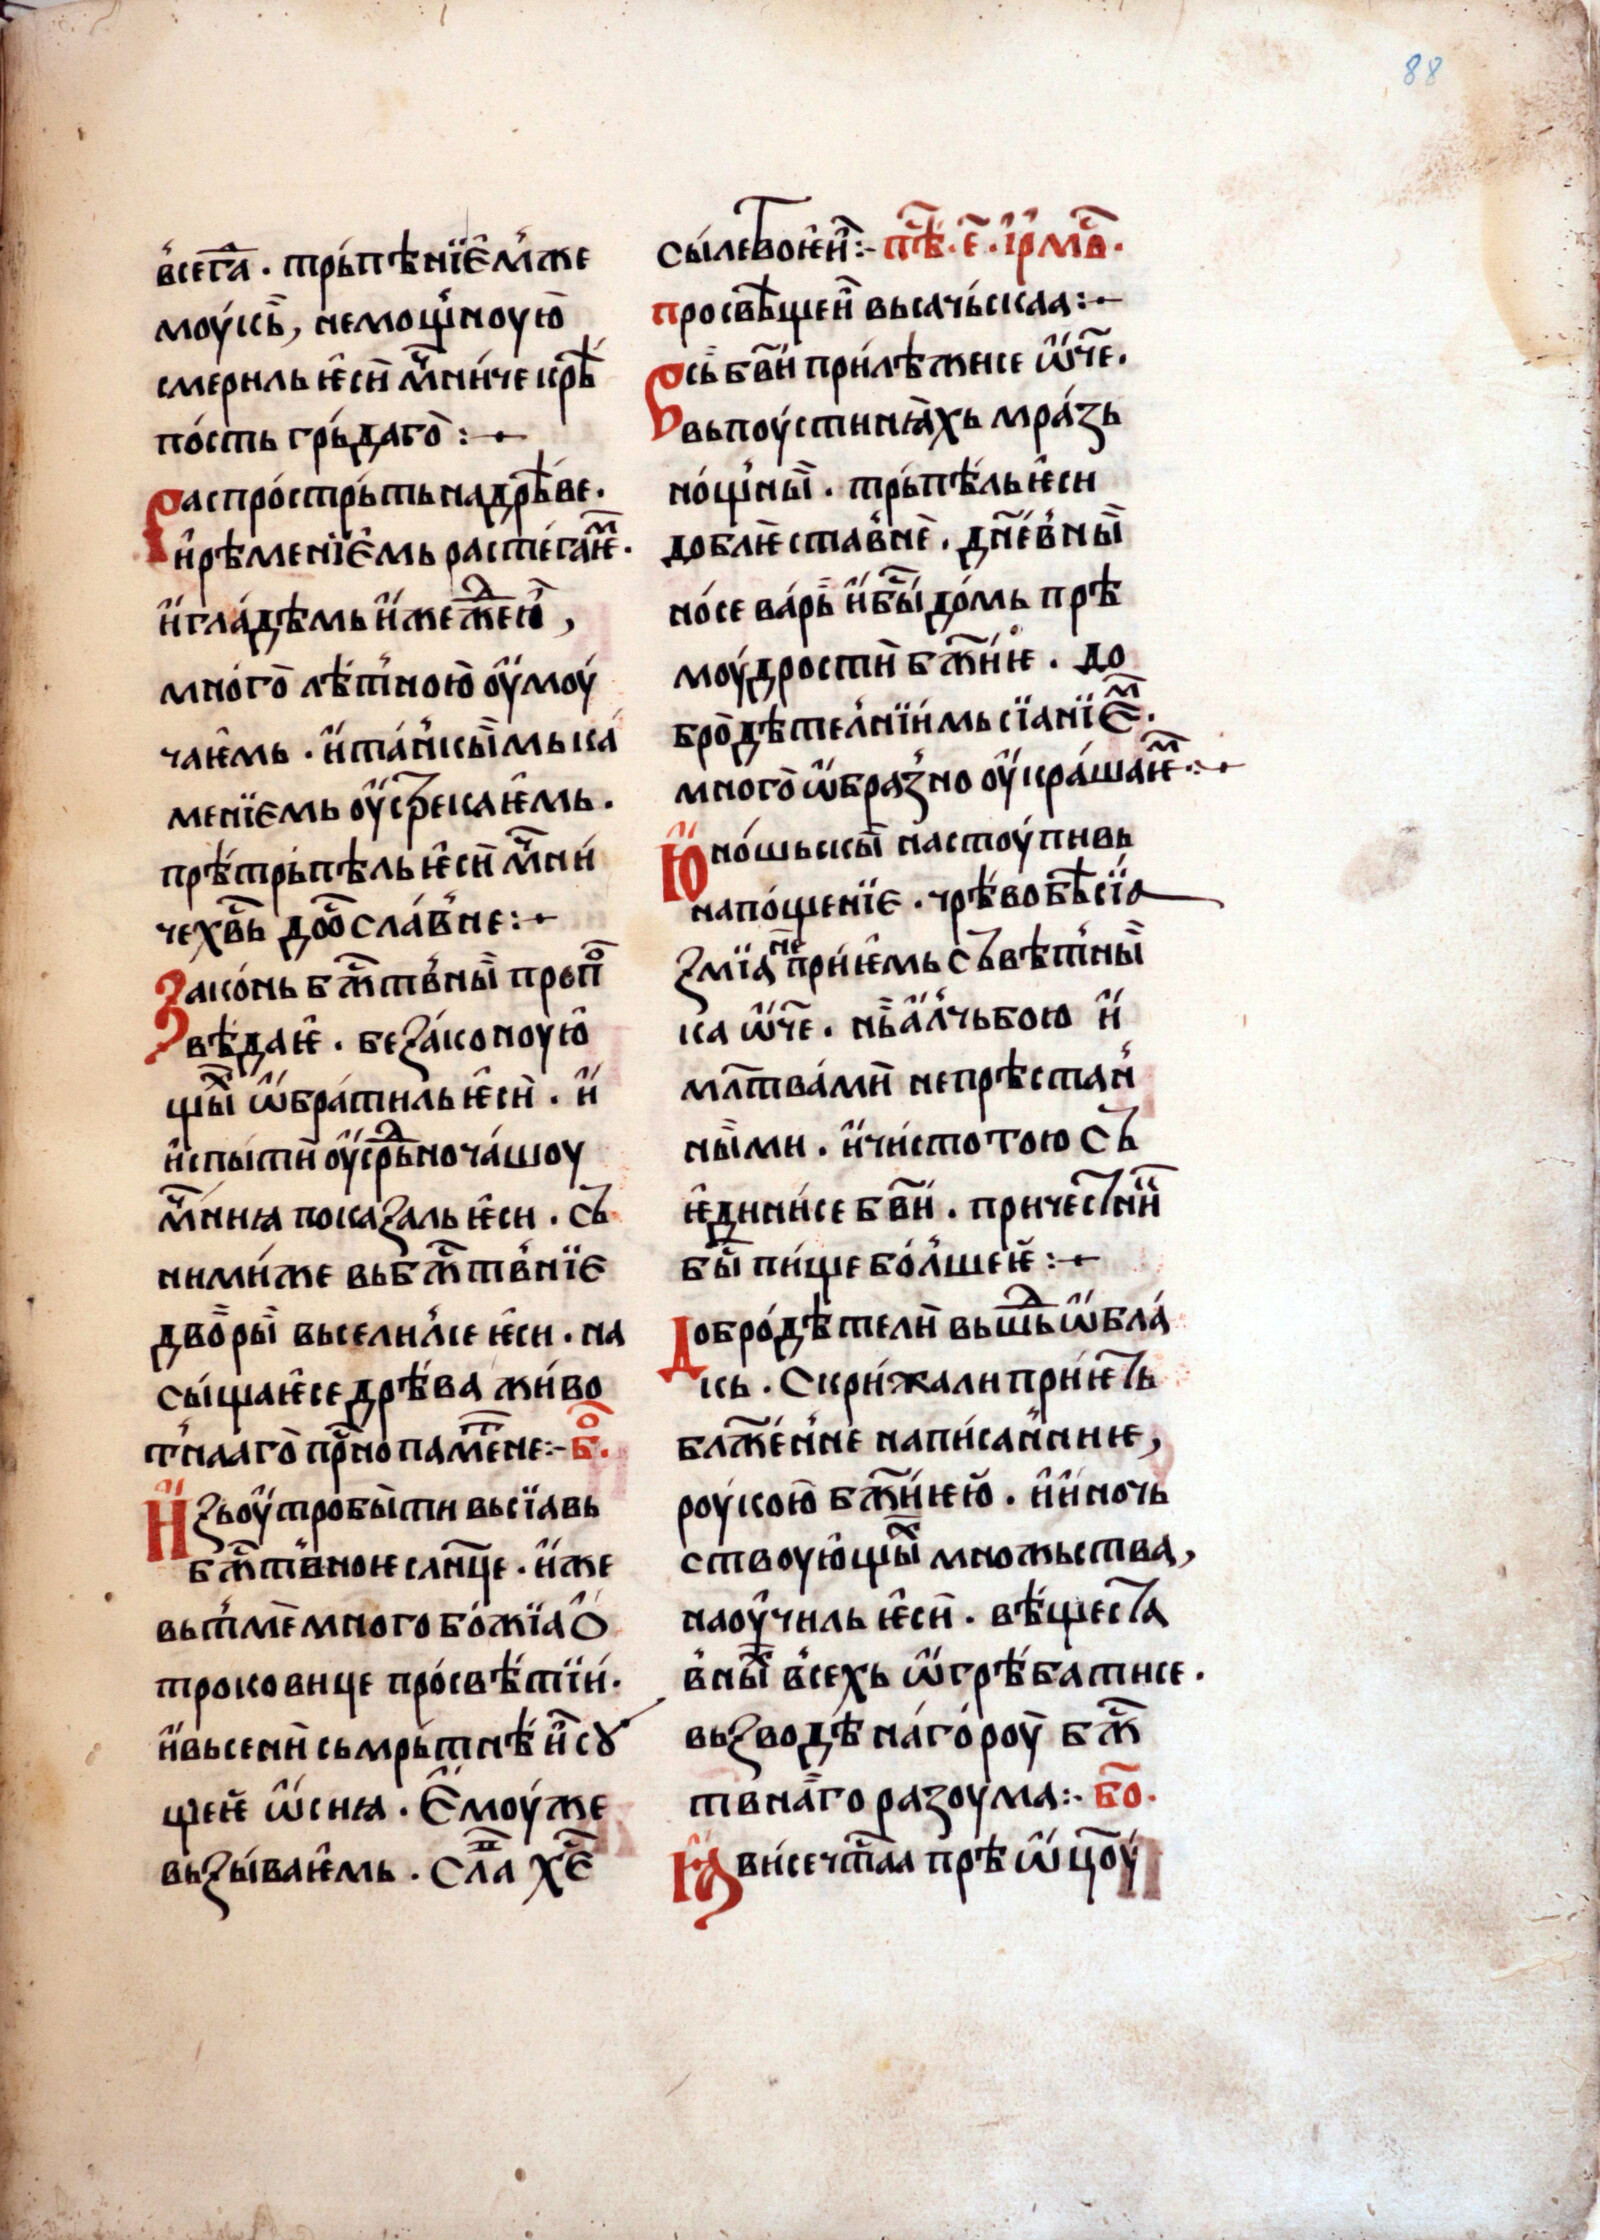 88
в҆сегⷣа . трь́пѣнїе҆м҆же
моу́кь, немощ҆ноую̀
смериль ѥ҆сѝ мⷱ҇ниче крѣ
по́сть грь́даго :~
Распро́стрьть на дрѣ́ве .
и҆ рѣ́менїе҆мь расте́гаѥⷨ .
и҆ гла́дѣмь и҆ жежⷣею̀,
мно́го лѣ́тⷩ҇ною оу҆моу́
чаѥмь . и҆ та́ чⷦ҇кы̀мь ка́
менїемь оу҆стрекаѥ҆мь .
прѣ́трьпѣль ѥ҆сѝ мⷱ҇ни́
че хвⷭ҇ь до́б҇осла́в҆не :~
Зако́нь бжⷭ҇тв҆ны̀ пропоⷡ҇
вѣ́даѥ . беза́коноую҆
щыⷯ ѡ҆бра́тиль ѥ҆сѝ . и҆
и҆спы́тѝ оу҆срⷣьно ча́шоу
мⷱ҇ниꙗ показаль ѥ҆си . съ
ними́же вь бжⷭ҇тв҆нїе
дво̀ры̀ вьселил҆се ѥ҆си . на
сы́щаѥ҆се дрѣ́ва живо
т҆нааго̀ прⷭ҇но паметⷩ҇е :- бⷪ҇.
И҆зь оу҆тробы̀ ти вьсїавь
бжⷭ҇тв҆ноѥ слнⷰ҇е . и҆же
вь т҆мѐ много бо́жїа ѻ҆
троковице про́свѣ́тїи́ .
и҆ вь сенѝ сьмрь́тнѣ и҆ соу
щеѥ ѡ҆сниꙗ . Е҆моу́же
вьзы́ваѥ҆мь . сла́ва хе҇
сы́ле твоѥ҆и҆ :- пѣⷭ҇ . е҃ . і҆рмⷭ҇ .
просвѣщенѝ вьсачь́скаа :~
Вⷭ҇сь бв҃и́ при́лѣжесе ѡ҆ч҃е .
вь поу́стинꙗхь мра́зь
но́щ҆ны̀ . трь́пѣ́ль ѥ҆си
доблѥстав҆нѐ . дн҃е́в҆ны̀
но́се ва́рь и҆ бы́ до́мь прѣ
моу́дростѝ бж҃и́ѥ . до
бро̀дѣтел҆нїимь сїанїеⷨ .
многоѡ҆браз҆но оу҆кра́шаѥⷨ :~
Ю҆но́шьскы̀ настоу́пивь
на по́щенїе . чрѣ́вобѣсїа
змїа не прииѥ҆мь сьвѣт҆ны̀
ка ѡ҆ч҃е . нь̀ а҆л҆чьбою и҆
мл҃тва́мѝ непрѣстан҆
ны̀ми . и҆ чи́стотою съ
ѥ҆дини́се бв҃и́ . причестнⷤїи
бы́ пи́ще бо́л҆шеѥ :~
Добро́дѣтелѝ вь шьⷣ ѡ҆бла́
кь . Скри́жали приѥть
блже҃н҆не напи́сан҆ниѥ,
роукою̀ бж҃и́ѥю̀ . и҆ и́ночь
ствоую҆щыⷯ множьства,
наоу҆чиль ѥ҆сѝ . вѣ́щества
в҆ныⷯ в҆сехь ѡ҆грѣ́батисе .
вьзводѣ на́ го́роу̀ бжⷭ҇
твна̀го разоума :- бо҃ .
ꙗ҆ви́се чⷭ҇таа прѣ ѡ҆цо҃у